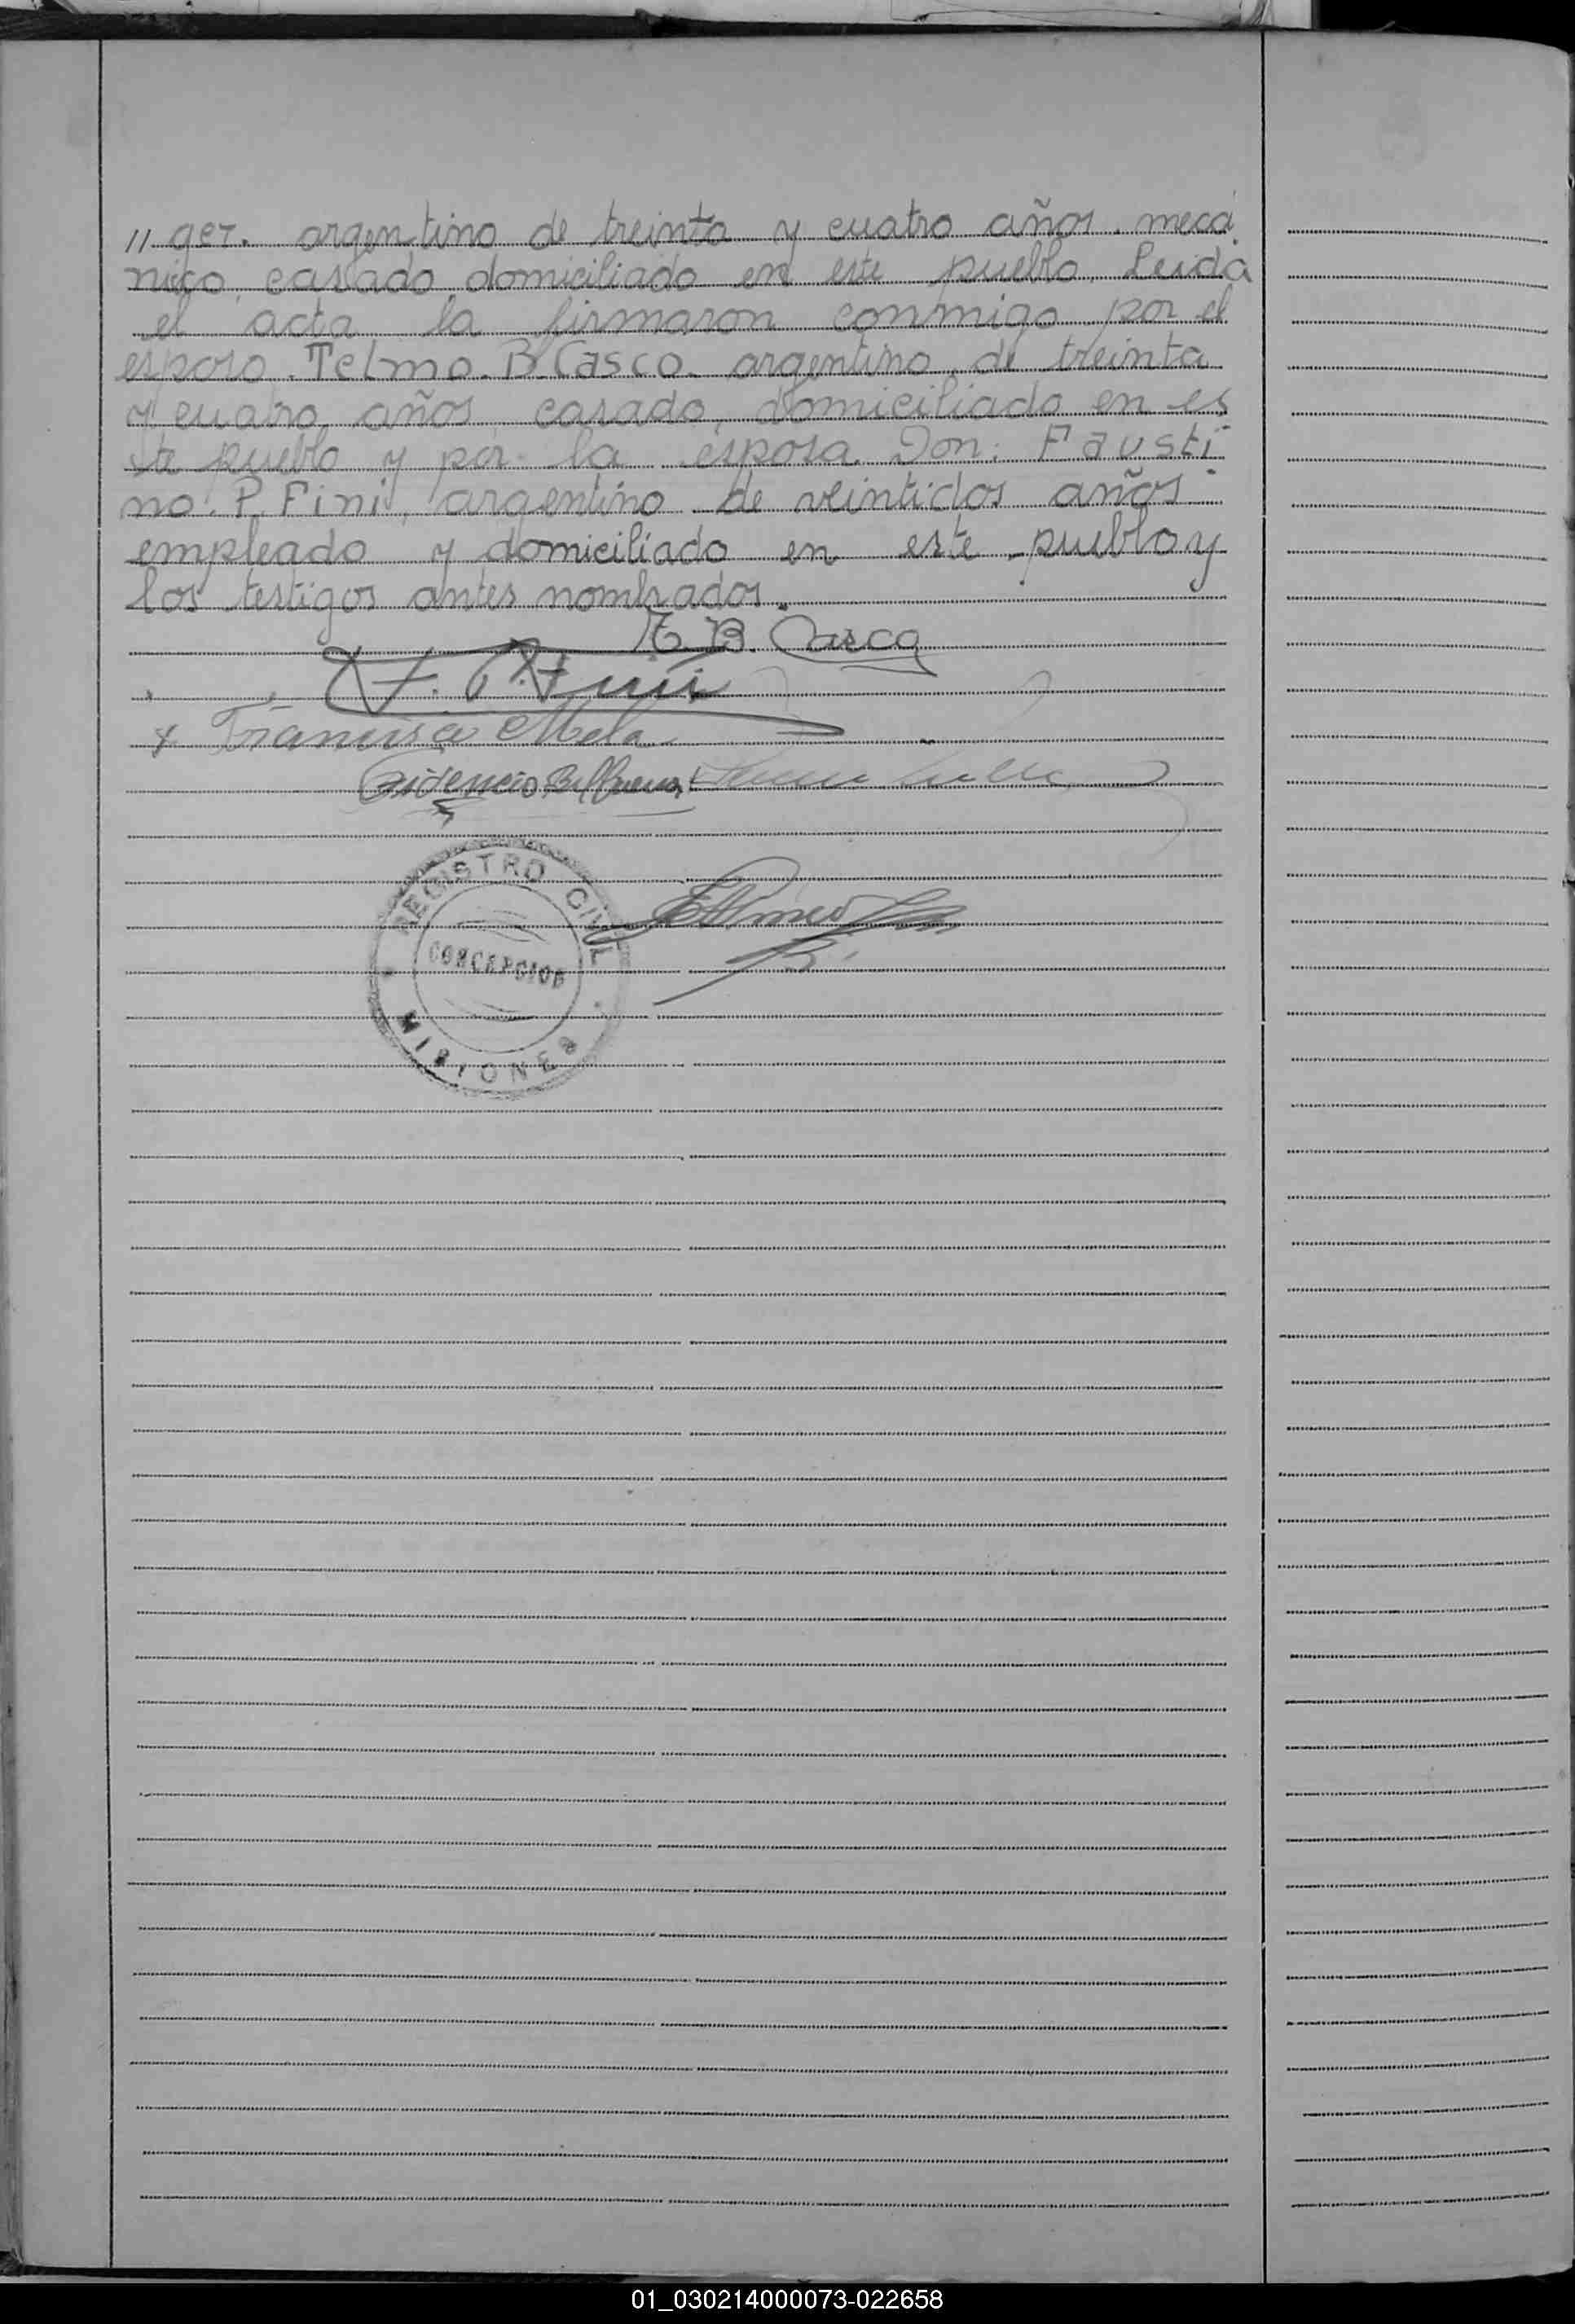 // ger. argentino de treinta y cuatro años. mecá
nico, casado, domiciliado en este pueblo, Leida
el acta la firmaron conmigo por el
esposo. Telmo. B. Casco. argentino, de treinta
y cuatro, años casado, domiciliado en es
te pueblo y por la esposa. Don: Fausti
no. P. Fini, argentino de veintidos años
empleado y domiciliado en este pueblo y
los testigos antes nombrados.
T. B. Casco
F. P. Fini
Francisca Mela
REGISTRO CIVIL
CONCEPCION
MISIONES
01_030214000073-022658